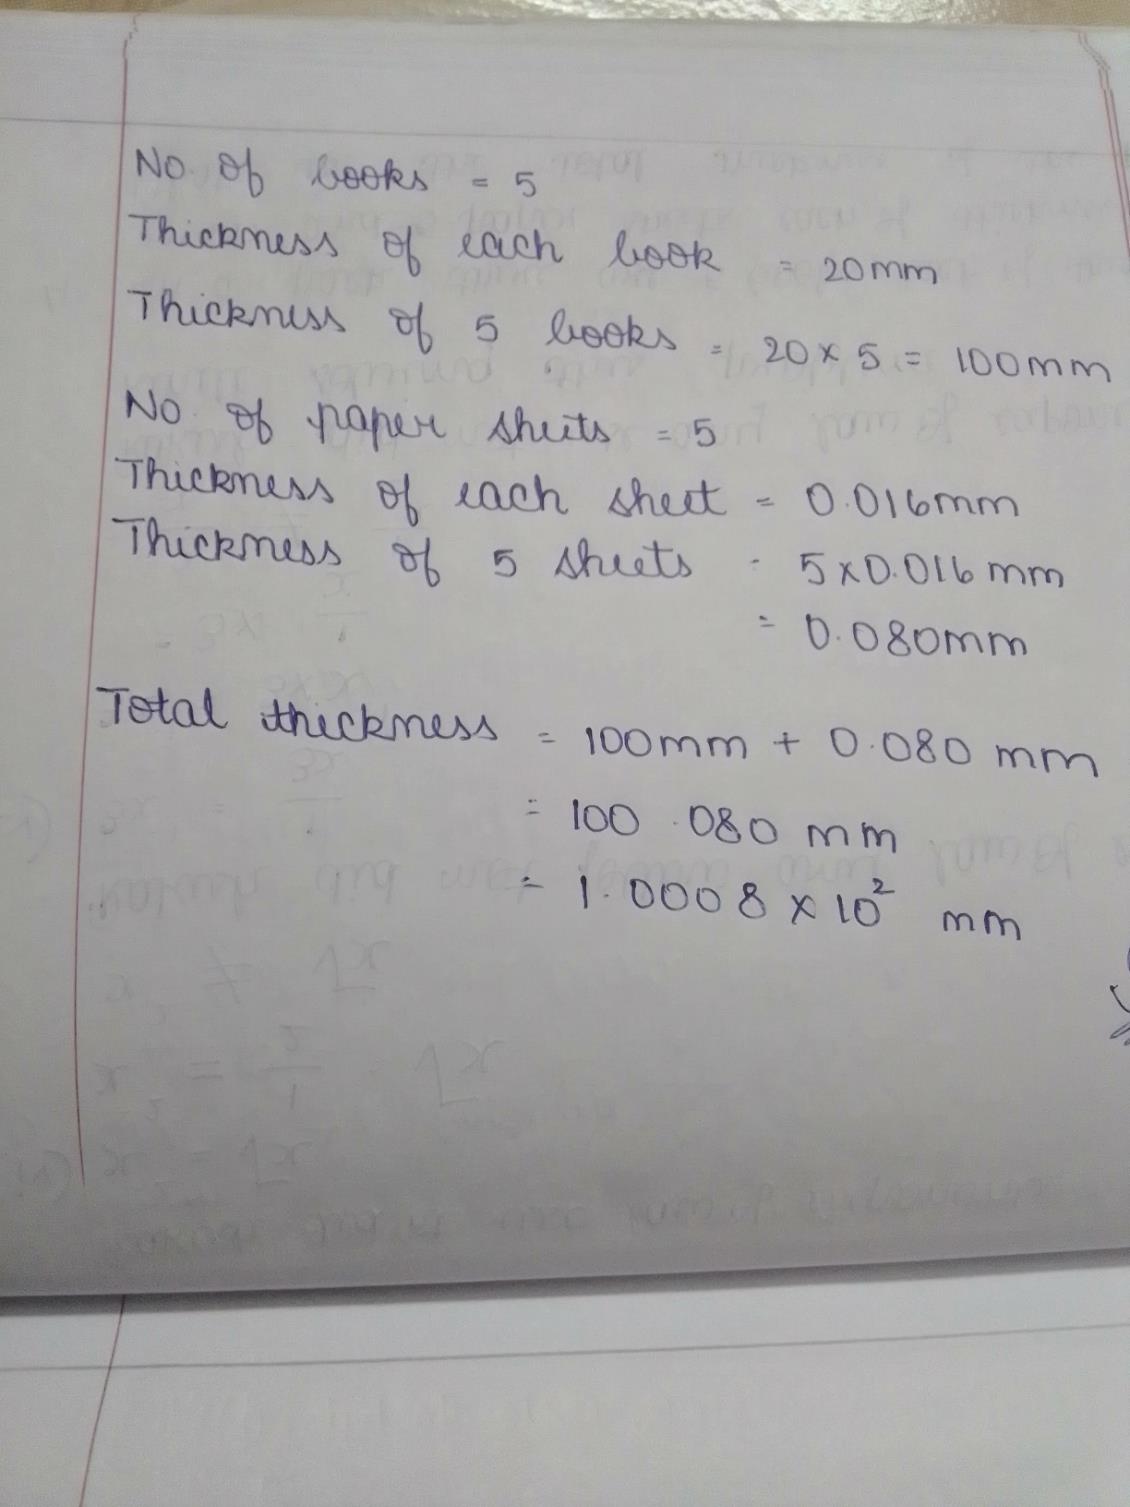 No. of books = 5
Thickness of each book = 20mm
Thickness of 5 books = 20 × 5 = 100mm
No. of paper sheets = 5
Thickness of each sheet = 0.016mm
Thickness of 5 sheets = 5×0.016 mm
= 0.080mm
Total thickness = 100mm + 0.080 mm
= 100.080 mm
= 1.0008 × 10² mm